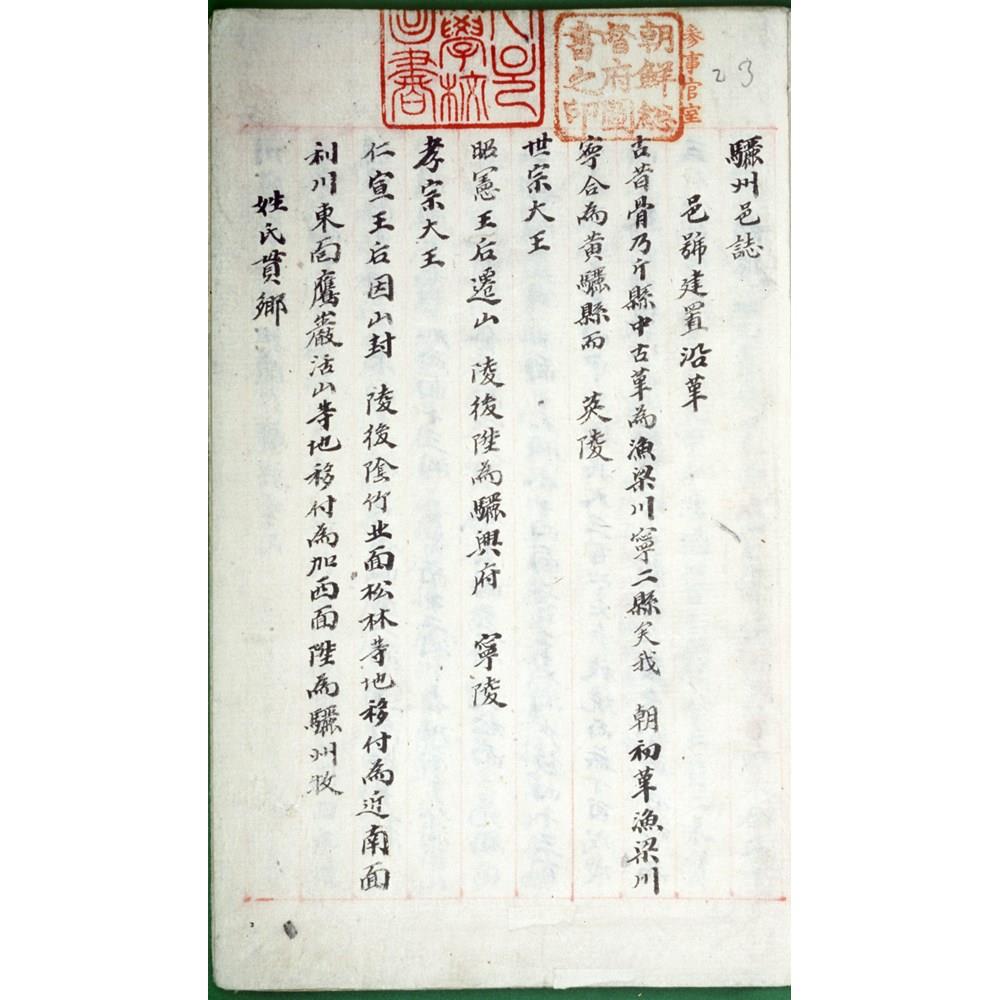 驪州邑誌
邑號建置沿革
古昔骨乃斤縣中古革為漁梁川寧二縣矣我 朝初革漁梁川
寧合為黃驪縣而 英陵
世宗大王
昭憲王后遷山 陵後陞為驪興府 寧陵
孝宗大王
仁宣王后因山封 陵後陰竹北面松林等地移付為近南面
利川東面鷹巖活山等地移付為加西面陞為驪州牧
姓氏貫鄉
參事官室
朝鮮總督府圖書之印
學校圖書
23